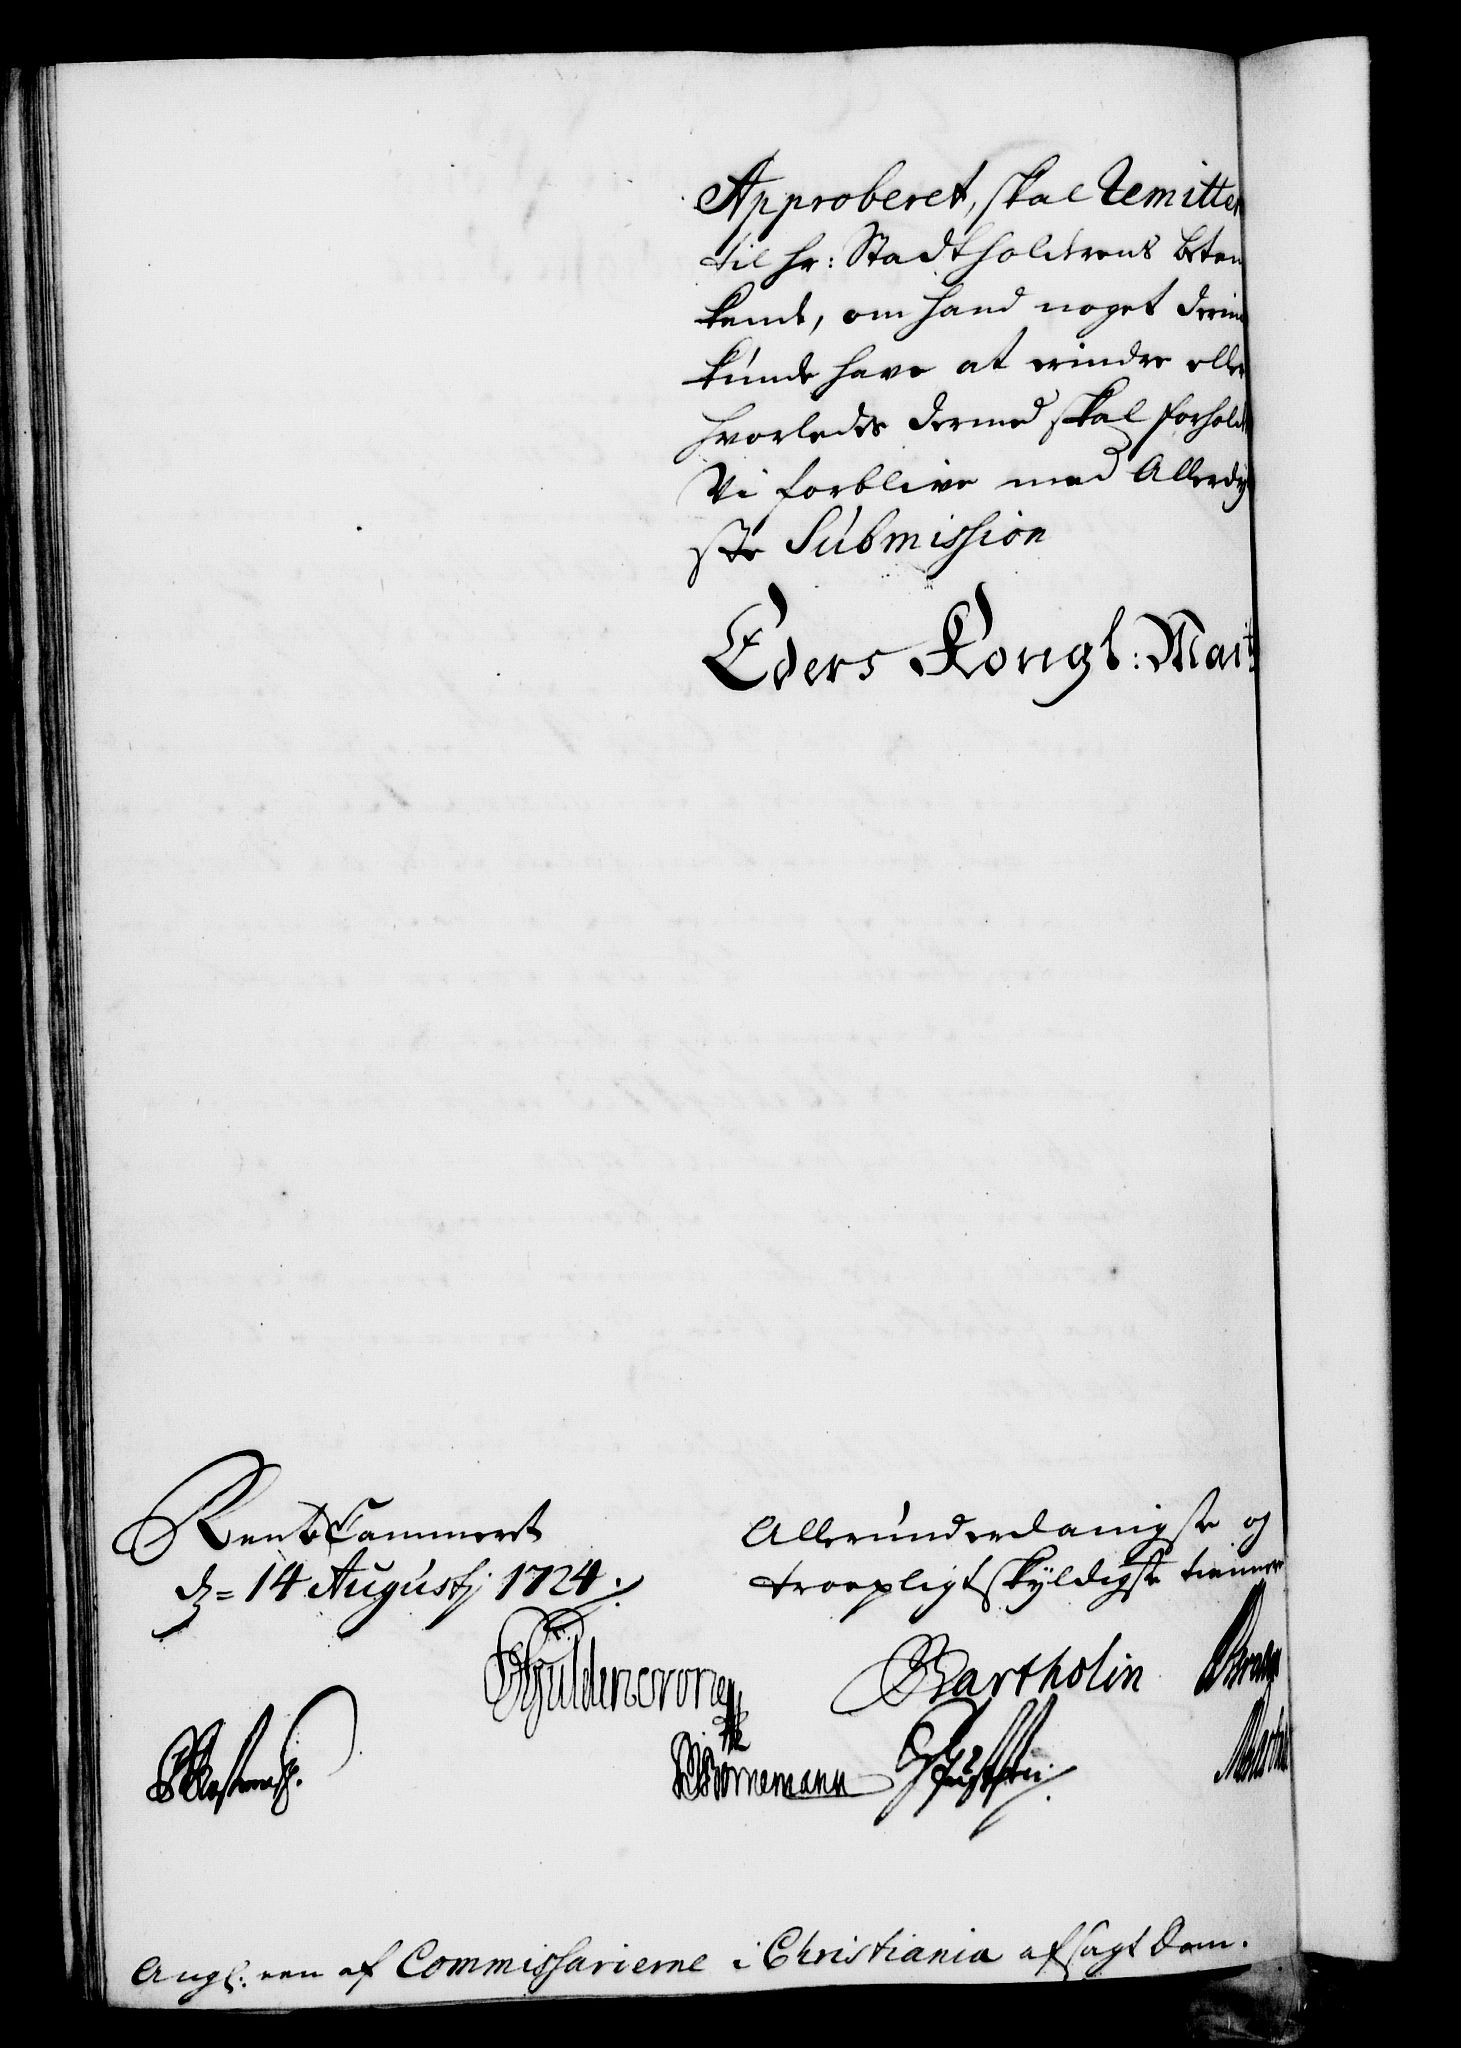 Approberet, skal Remitter
til hr: Stadtholderens beten
kende, om hand noget derim
kunde have at erindre eller
hvorledes dermed skal forhold
Vi forblive med Allerdy
ste Submission
Eders Kongl: Mai<sup>ts</sup>
RenteCammeret
d= 14 Augustj 1724.
Allerunderdanigste og
troepligtskyldigste tienner
Güldencrone
Bartholin
Bornemann
Angl: een af Commissarierne i Christiania afsagt Dom.